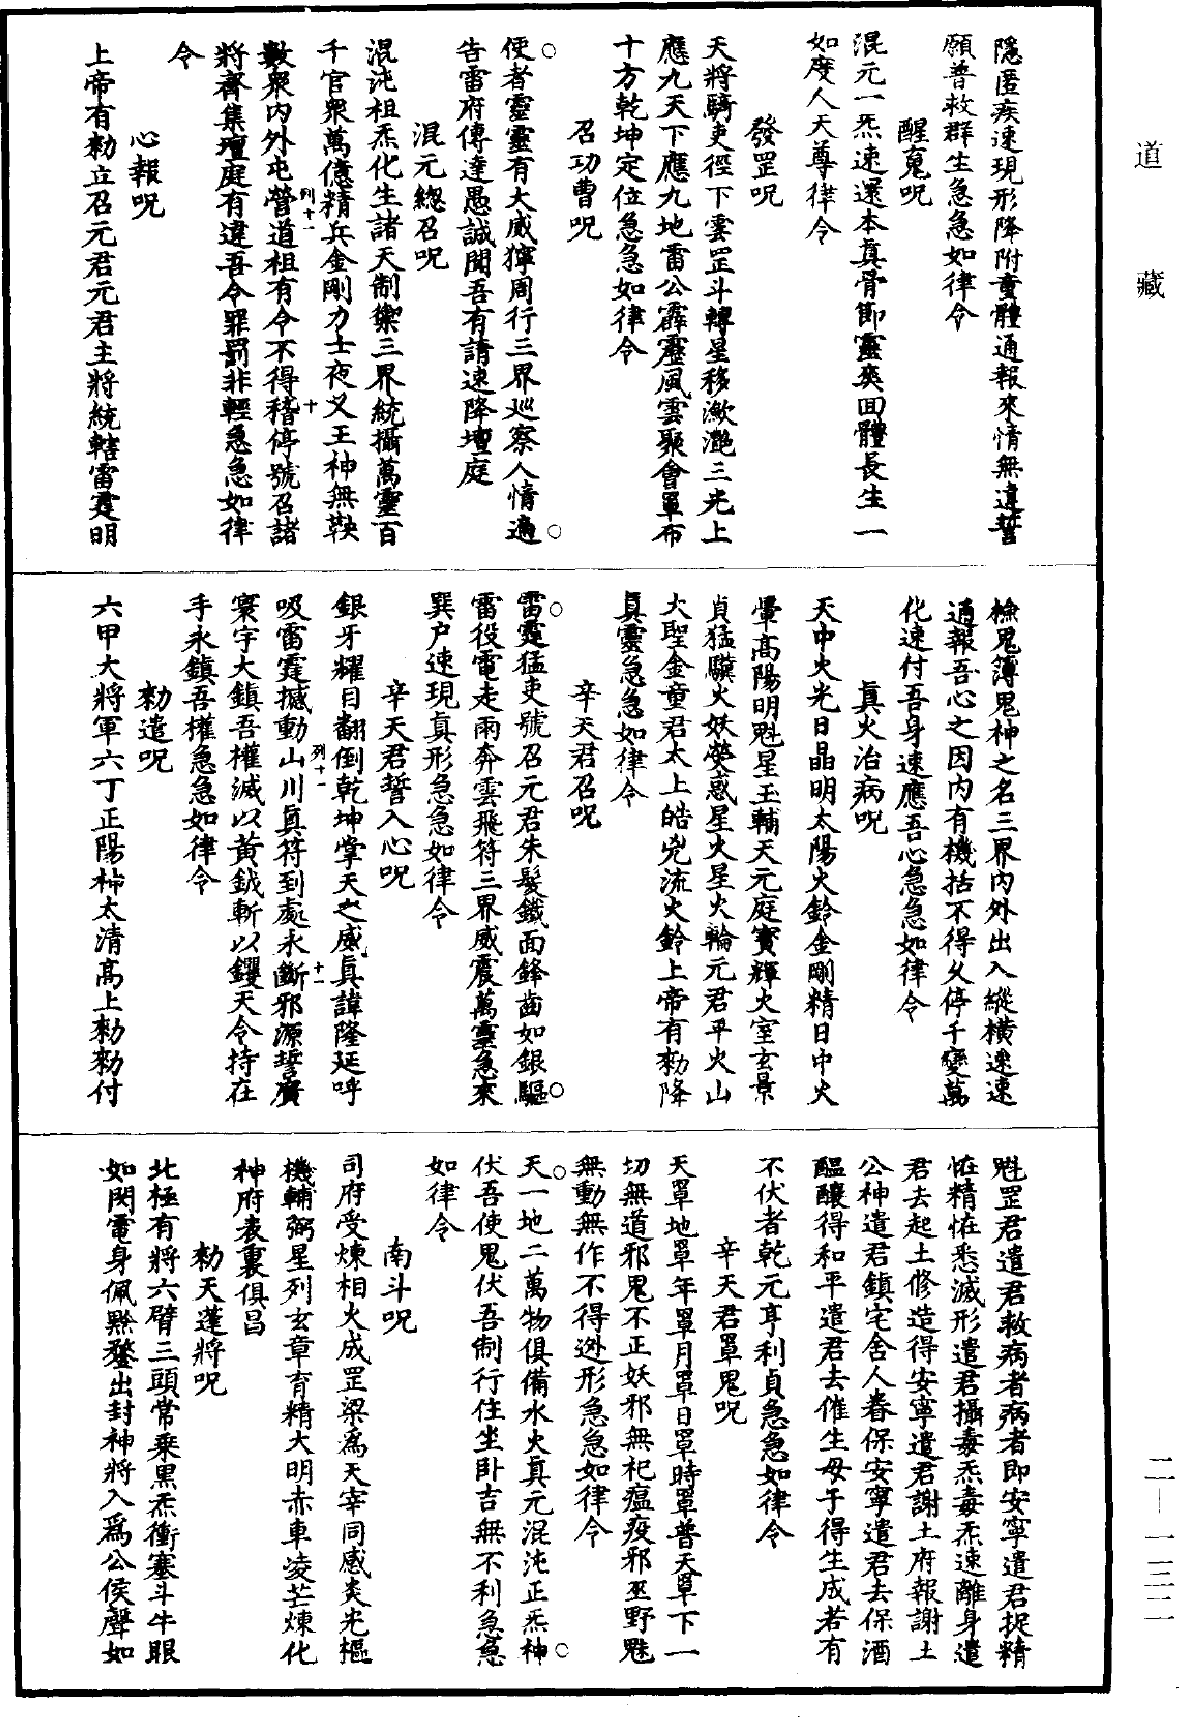 道藏
隱匿疾速現形降附童體通報來情無違誓
願普救群生急急如律令
醒寃呪
混元一炁速還本真骨節靈爽回體長生一
如度人天尊律令
發罡呪
天將騎吏徑下雲罡斗轉星移潋灔三光上
應九天下應九地雷公霹靂風雲聚會罩布
十方乾坤定位急急如律令
召功曹呪
使者靈靈有大威獰周行三界巡察人情適
告雷府傳達愚誠聞吾有請速降壇庭
混元總召呪
混沌祖炁化生諸天制禦三界統攝萬靈百
千官眾萬億精兵金剛力士夜叉王神無鞅
數眾內外屯營道祖有令不得稽停號召諸
將齊集壇庭有違吾令罪罰非輕急急如律
令
心報呪
上帝有勑立召元君元君主將統轄雷霆明
檢鬼簿鬼神之名三界內外出入縱橫速速
通報吾心之因內有機括不得久停千變萬
化速付吾身速應吾心急急如律令
真火治病呪
天中火光日晶明太陽火鈴金剛精日中火
暈高陽明魁星玉輔天元庭寶輝火室玄景
貞猛驥火妖熒惑星火星火輪元君平火山
大聖金童君太上皓兇流火鈴上帝有勑降
真靈急急如律令
辛天君召呪
雷霆猛吏號召元君朱髮鐵面鋒齒如銀驅
雷役電走雨奔雲飛符三界威震萬靈急來
巽户速現真形急急如律令
辛天君誓入心呪
銀牙耀目翻倒乾坤掌天之威真諱隆延呼
吸雷霆撼動山川真符到處永斷邪源誓廣
寰宇大鎮吾權滅以黃鉞斬以钁天令持在
手永鎮吾權急急如律令
勑遣呪
六甲大將軍六丁正陽柿太清高上勑勑付
魁罡君遣君救病者病者即安寧遣君捉精
怪精怪悉滅形遣君攝毒炁毒炁速離身遣
君去起土修造得安寧遣君謝土府報謝土
公神遣君鎮宅舍人眷保安寧遣君去保酒
醞釀得和平遣君去催生母子得生成若有
不伏者乾元亨利貞急急如律令
辛天君罩鬼呪
天罩地罩年罩月罩日罩時罩普天罩下一
切無道邪鬼不正妖邪無祀瘟疫邪巫野魅
無動無作不得迯形急急如律令
天一地二萬物俱備水火真元混沌正炁神
伏吾使鬼伏吾制行住坐卧吉無不利急急
如律令
南斗呪
司府受煉相火成罡梁為天宰同感炎光樞
機輔弼星列玄章育精大明赤車凌芒煉化
神府表裏俱昌
勑天蓬將呪
北極有將六臂三頭常乘黑炁衝塞斗牛眼
如閃電身佩黔鍪出封神將入為公侯聲如
列十一
十
列十一
十一
二—一三二